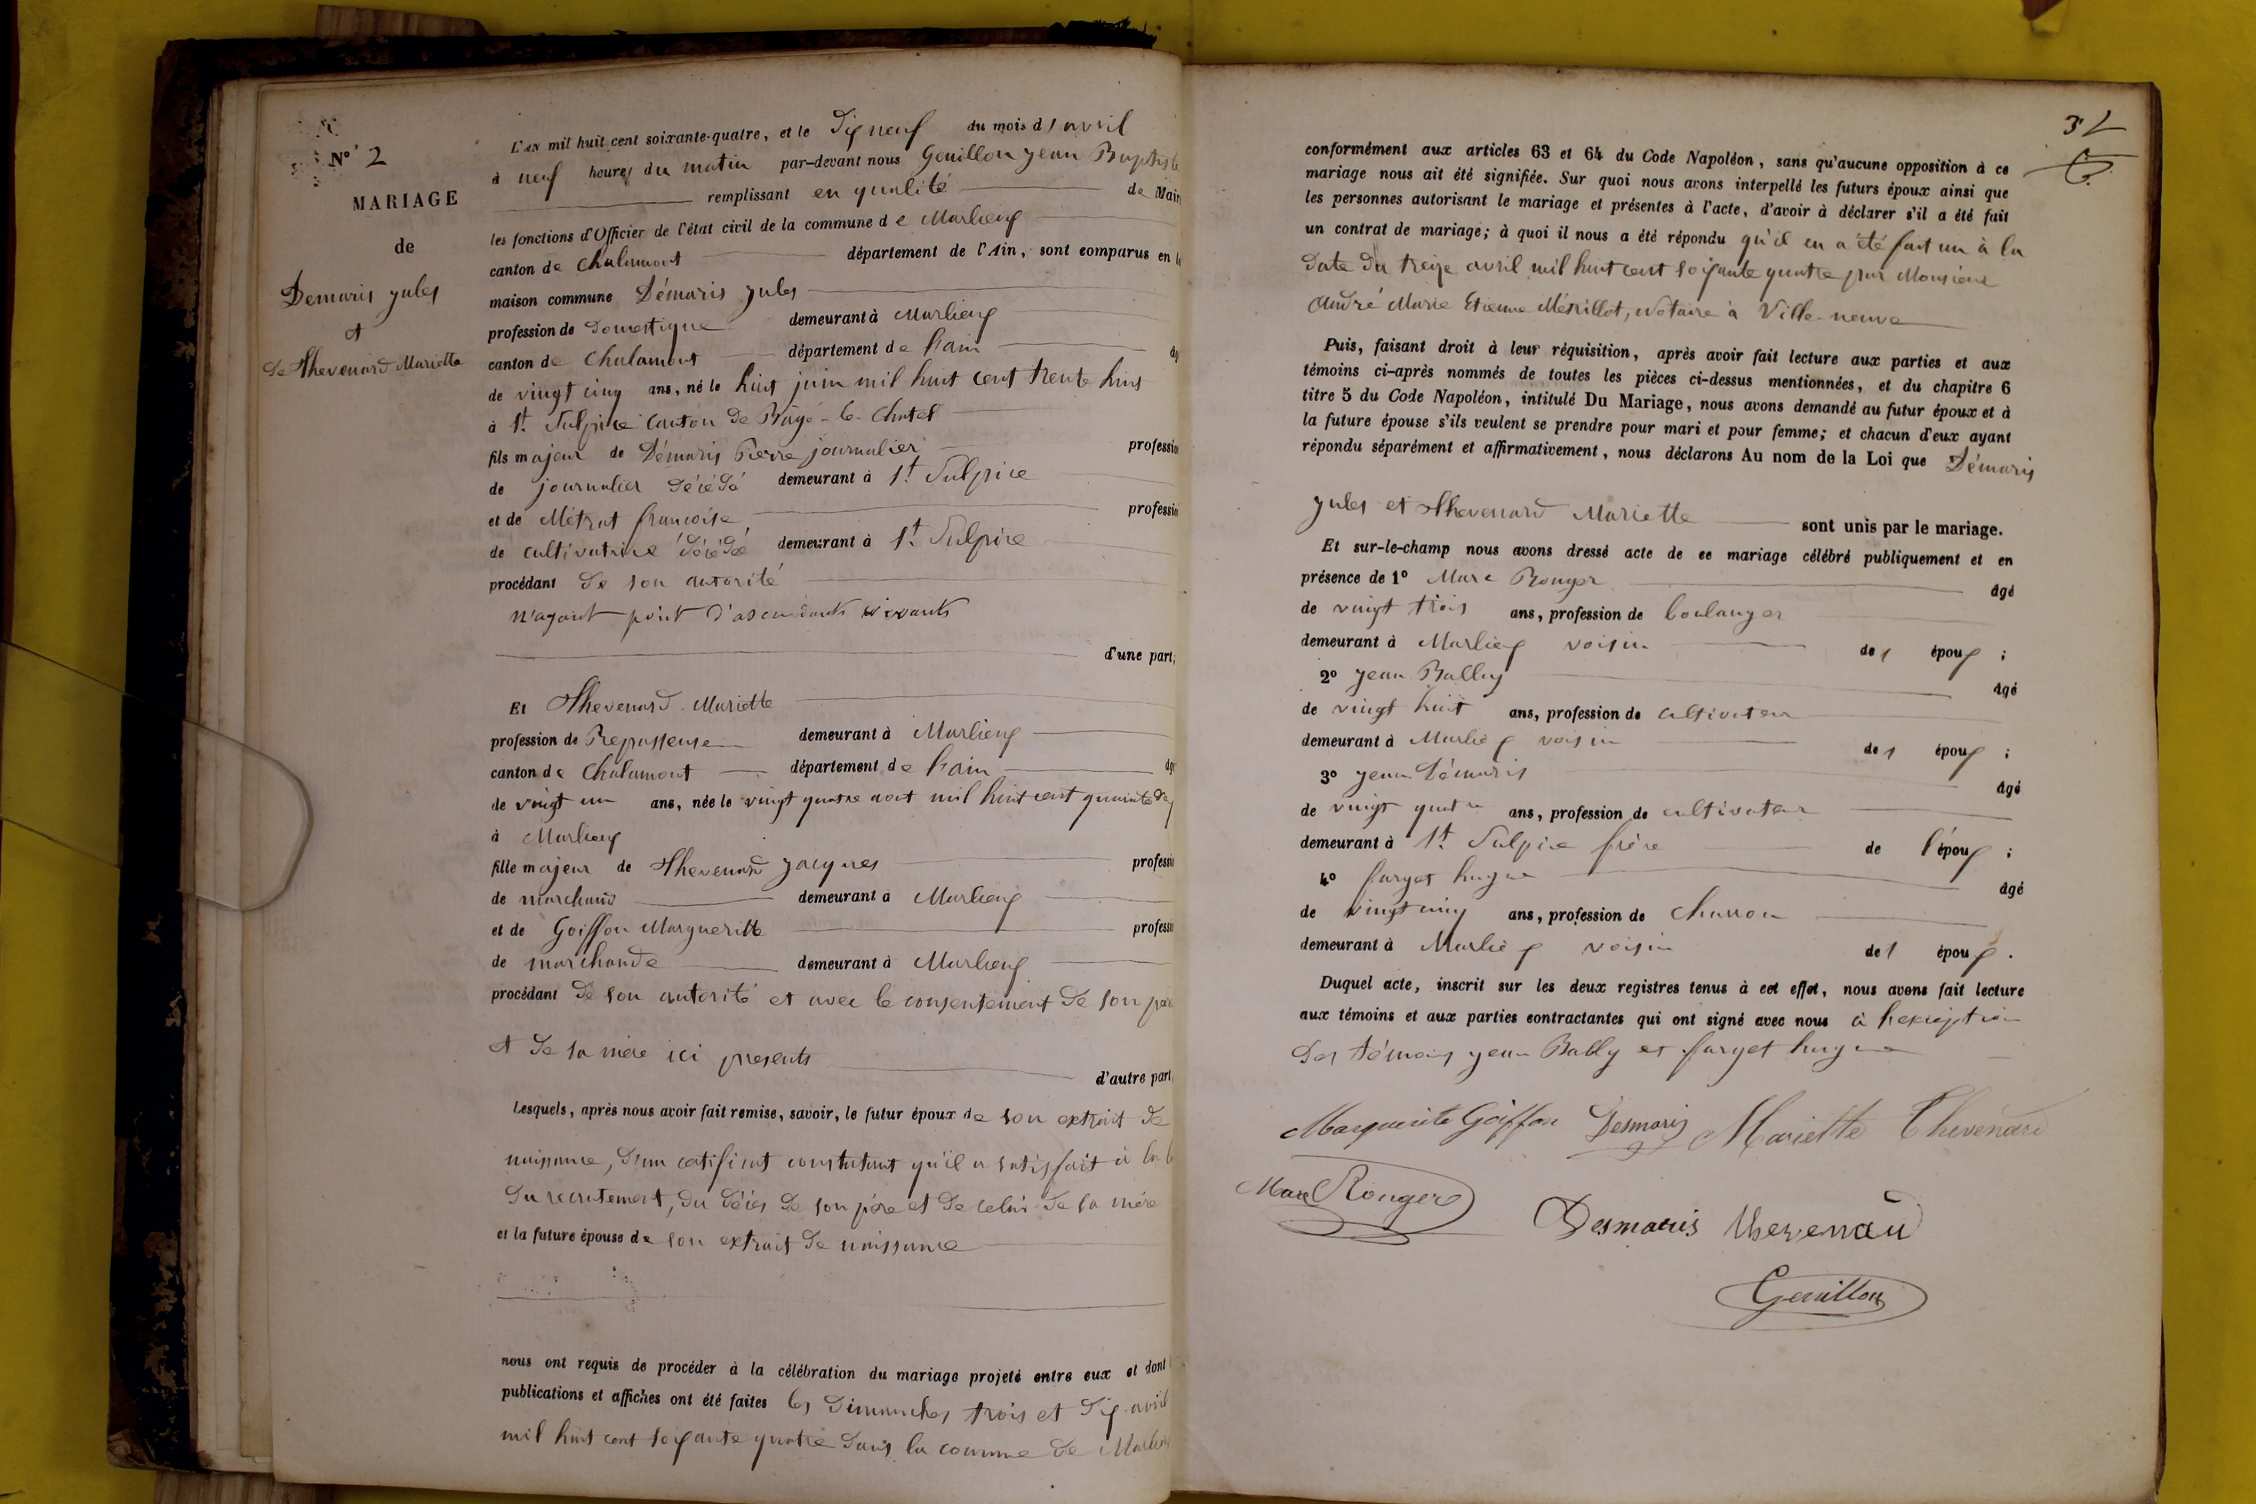 N° 2
MARIAGE
de
Demaris jules
et
de Thevenard Mariette
L'AN mil huit cent soixante-quatre, et le dix neuf du mois d'avril
à neuf heures du matin par-devant nous Gouillon jean Baptiste
remplissant en qualité de Maire
les fonctions d'Officier de l'état civil de la commune de Marlieux
canton de Chalamont département de l'Ain, sont comparus en la
maison commune Démaris jules
profession de domestique demeurant à Marlieux
canton de Chalamont département de l'ain âgé
de vingt cinq ans, né le huit juin mil huit cent trente huit
à St Sulpice canton de Bagé-le-chatel
fils majeur de Démaris Pierre journalier profession
de journalier décédé demeurant à St Sulpice
et de Métrat francoise, profession
de cultivatrice décédée demeurant à St Sulpice
procédant de son autorité
n'ayant point d'ascendants vivants
d'une part;
Et Thevenard Mariette
profession de Repasseuse demeurant à Marlieux
canton de Chalamont département de l'ain âgée
de vingt un ans, née le vingt quatre aout mil huit cent quarante deux
à Marlieux
fille majeur de Thevenard jacques profession
de marchand demeurant à Marlieux
et de Goiffon Margueritte profession
de marchande demeurant à Marlieux
procédant de son autorité et avec le consentement de son père
et de sa mère ici presents
d'autre part,
Lesquels, après nous avoir fait remise, savoir, le futur époux de son extrait de
naissance, d'un catificat constatant qu'il a satisfait à la loi
du recrutement, du décès de son père et de celui de sa mère
et la future épouse de son extrait de naissance
nous ont requis de procéder à la célébration du mariage projeté entre eux et dont
publications et affiches ont été faites les dimanches trois et dix avril
mil huit cent soixante quatre dans la comune de Marlieux
32
conformément aux articles 63 et 64 du Code Napoléon, sans qu'aucune opposition à ce
mariage nous ait été signifiée. Sur quoi nous avons interpellé les futurs époux ainsi que
les personnes autorisant le mariage et présentes à l'acte, d'avoir à déclarer s'il a été fait
un contrat de mariage; à quoi il nous a été répondu qu'il en a été fait un à la
date du treize avril mil huit cent soixante quatre par Monsieur
André Marie Etienne Métrillot, Notaire à Ville-neuve
Puis, faisant droit à leur réquisition, après avoir fait lecture aux parties et aux
témoins ci-après nommés de toutes les pièces ci-dessus mentionnées, et du chapitre 6
titre 5 du Code Napoléon, intitulé Du Mariage, nous avons demandé au futur époux et à
la future épouse s'ils veulent se prendre pour mari et pour femme; et chacun d'eux ayant
répondu séparément et affirmativement, nous déclarons Au nom de la Loi que Démaris
jules et Thevenard Mariette sont unis par le mariage.
Et sur-le-champ nous avons dressé acte de ce mariage célébré publiquement et en
présence de 1° Marc Rouger âgé
de vingt trois ans, profession de boulanger
demeurant à Marlieux voisin de l époux ;
2° jean Bally âgé
de vingt huit ans, profession de cultivateur
demeurant à Marlieux voisin de l époux ;
3° jean Démaris âgé
de vingt quatre ans, profession de cultivateur
demeurant à St Sulpice frère de l'époux ;
4° farget hugue âgé
de vingt cinq ans, profession de charron
demeurant à Marlieux voisin de l époux .
Duquel acte, inscrit sur les deux registres tenus à cet effet, nous avons fait lecture
aux témoins et aux parties contractantes qui ont signé avec nous à l'exception
des témoins jean Bally et farget hugue
Marguerite Goiffon Desmaris Mariette Thevenard
Marc Rougere
Desmaris thevenad
Gouillon